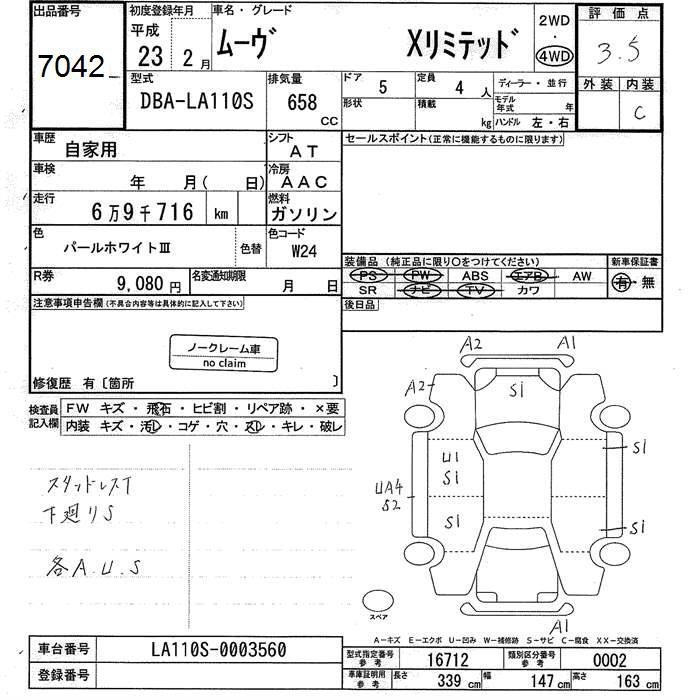 出品番号
7042
初度登録年月
平成
23 2 月
車名・グレード
ムーヴ Xリミテッド
2WD
・
4WD
評価点
3.5
外装 内装
C
型式
DBA-LA110S
排気量
658
CC
ドア 5
定員 4 人
形状
積載 kg
ディーラー・並行
モデル年式 年
ハンドル 左・右
車歴
自家用
シフト
AT
セールスポイント(正常に機能するものに限ります)
車検
年 月( 日)
冷房
AAC
走行
6万9千716 km
燃料
ガソリン
色
パールホワイトⅢ
色替
色コード
W24
装備品(純正品に限り○をつけてください)
新車保証書
PS PW ABS エアB AW
SR ナビ TV カワ
有・無
R券
9,080円
名変通知期限
月 日
後日品
注意事項申告欄(不具合内容等は具体的に記入して下さい)
ノークレーム車
no claim
修復歴 有〔箇所 〕
検査員記入欄
FW キズ・飛石・ヒビ割・リペア跡・×要
内装 キズ・汚レ・コゲ・穴・スレ・キレ・破レ
スタッドレスT
下廻りS
各A.U.S
A2 A1
A2
S1
S1
U1
S1
UA4
S2
S1
S1
A1
スペア
A-キズ E-エクボ U-凹み W-補修跡 S-サビ C-腐食 XX-交換済
車台番号
LA110S-0003560
登録番号
型式指定番号
参考
16712
類別区分番号
参考
0002
車庫証明用
参考
長さ 339 cm
幅 147 cm
高さ 163 cm